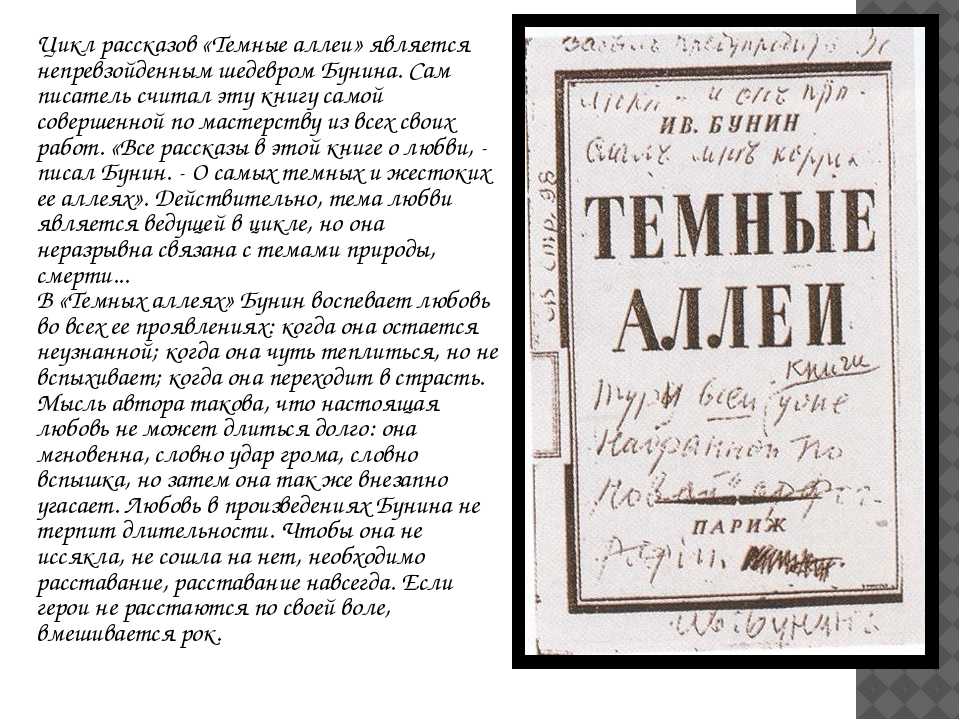 Цикл рассказов «Темные аллеи» является
непревзойденным шедевром Бунина. Сам
писатель считал эту книгу самой
совершенной по мастерству из всех своих
работ. «Все рассказы в этой книге о любви, -
писал Бунин. - О самых темных и жестоких
ее аллеях». Действительно, тема любви
является ведущей в цикле, но она
неразрывна связана с темами природы,
смерти...
В «Темных аллеях» Бунин воспевает любовь
во всех ее проявлениях: когда она остается
неузнанной; когда она чуть теплиться, но не
вспыхивает; когда она переходит в страсть.
Мысль автора такова, что настоящая
любовь не может длиться долго: она
мгновенна, словно удар грома, словно
вспышка, но затем она так же внезапно
угасает. Любовь в произведениях Бунина не
терпит длительности. Чтобы она не
иссякла, не сошла на нет, необходимо
расставание, расставание навсегда. Если
герои не расстаются по своей воле,
вмешивается рок.
ИВ. БУНИН
стр. 98
ТЕМНЫЕ
АЛЛЕИ
книги
всей
по
ПАРИЖ
Ив. Бунинъ